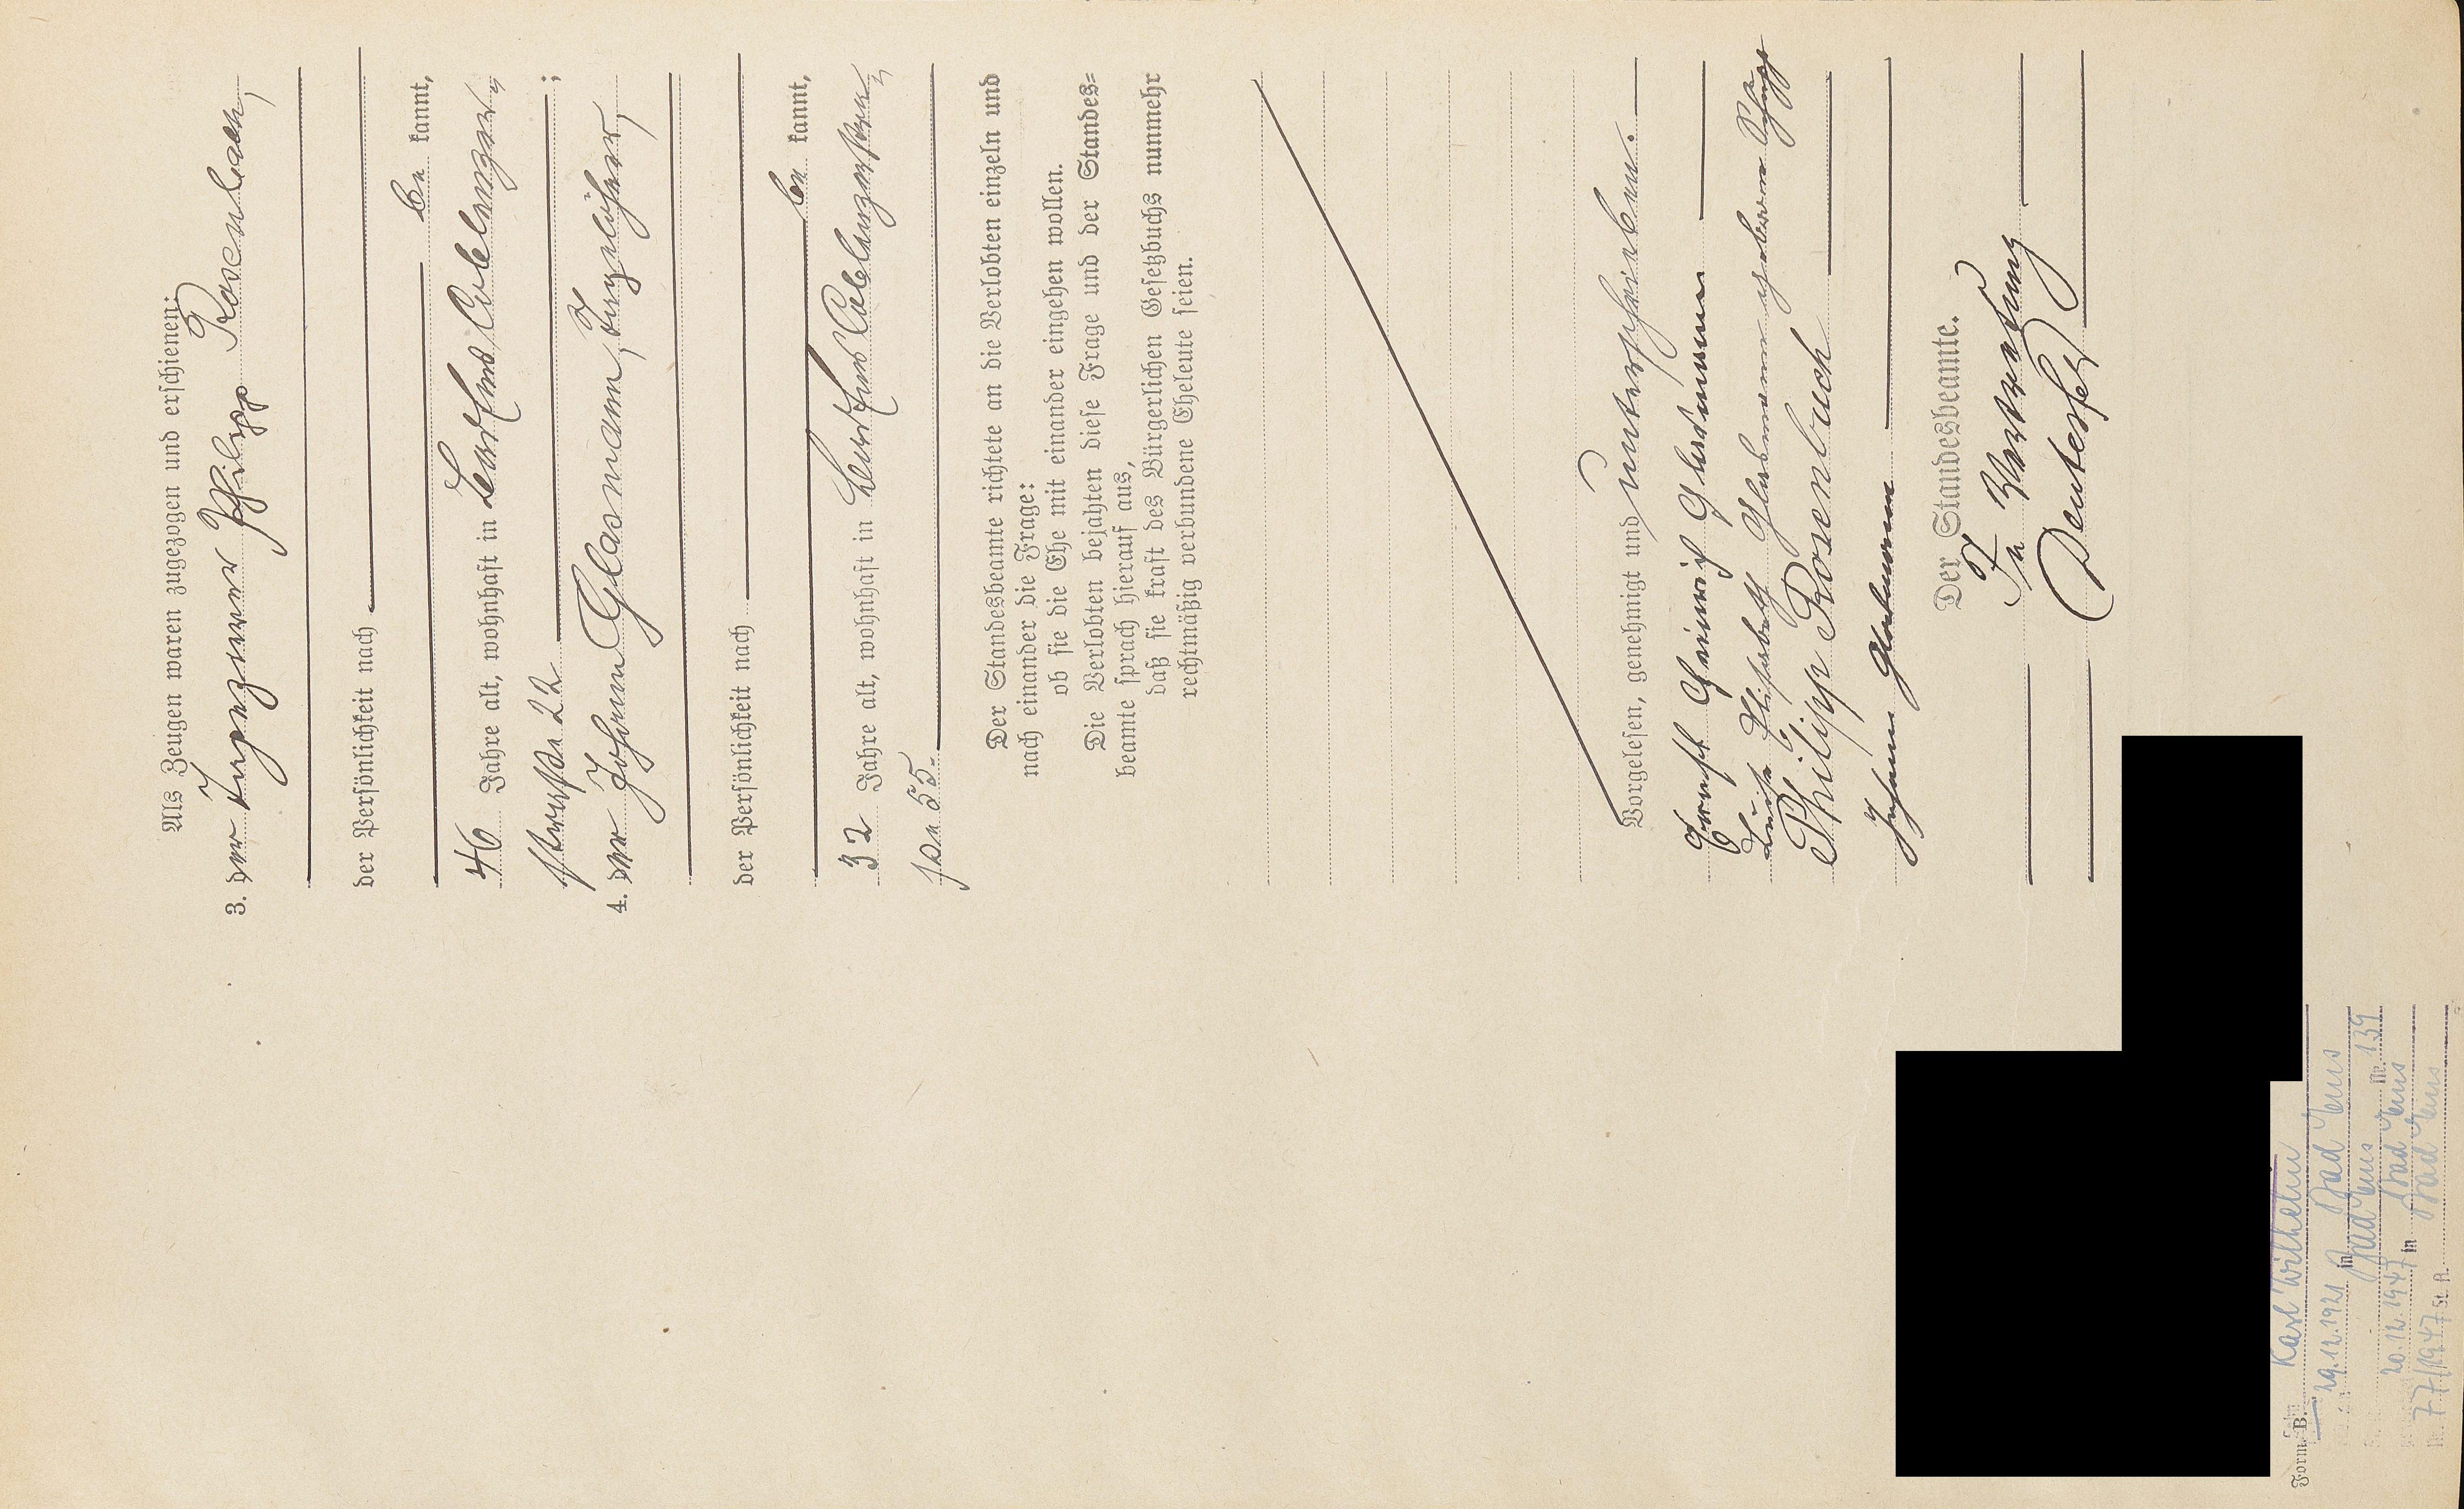 Als Zeugen waren zugezogen und erschienen:
3. der Tapezierer Philipp Rosenbach,
der Persönlichkeit nach
be kannt,
46 Jahre alt, wohnhaft in Bad Ems, Coblenzer-
straße 22 ;
4. der Johann Glasmann, Tagelöhner,
der Persönlichkeit nach
be kannt,
32 Jahre alt, wohnhaft in Bad Ems Coblenzerstra-
ße 55.
Der Standesbeamte richtete an die Verlobten einzeln und
nach einander die Frage:
ob sie die Ehe mit einander eingehen wollen.
Die Verlobten bejahten diese Frage und der Standes=
beamte sprach hierauf aus,
daß sie kraft des Bürgerlichen Gesetzbuchs nunmehr
rechtmäßig verbundene Eheleute seien.
Vorgelesen, genehmigt und unterschrieben.
Ernst Heinrich Glasmann
Luise Elisabeth Glasmann geborene
Philipp Rosenbach
Johann Glasmann
Der Standesbeamte.
In Vertretung
Form. B.
Karl Wilhelm
29.12.1921 in Bad Ems
Bad Ems Nr. 139
20.12.1947 in Bad Ems
Nr. 77/1947 St. A. Bad Ems